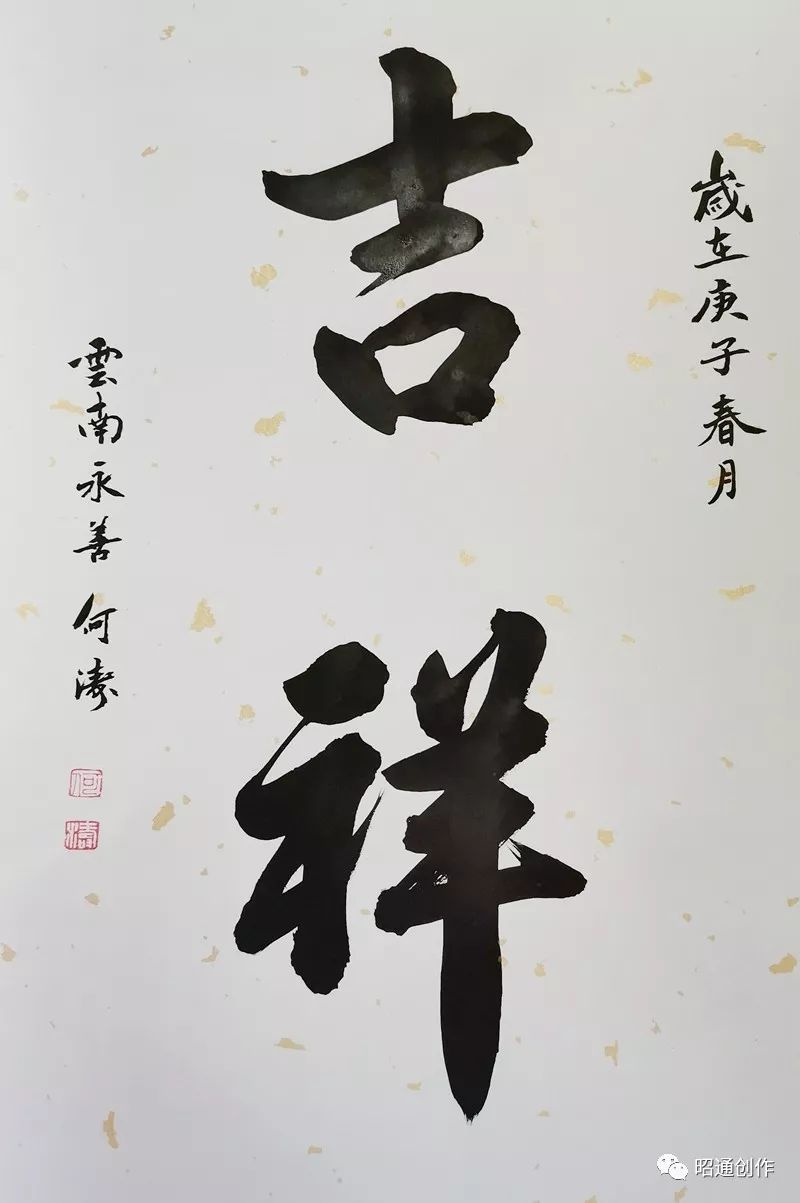 歲在庚子春月
吉祥
雲南永善 何濤
何
濤
昭通创作